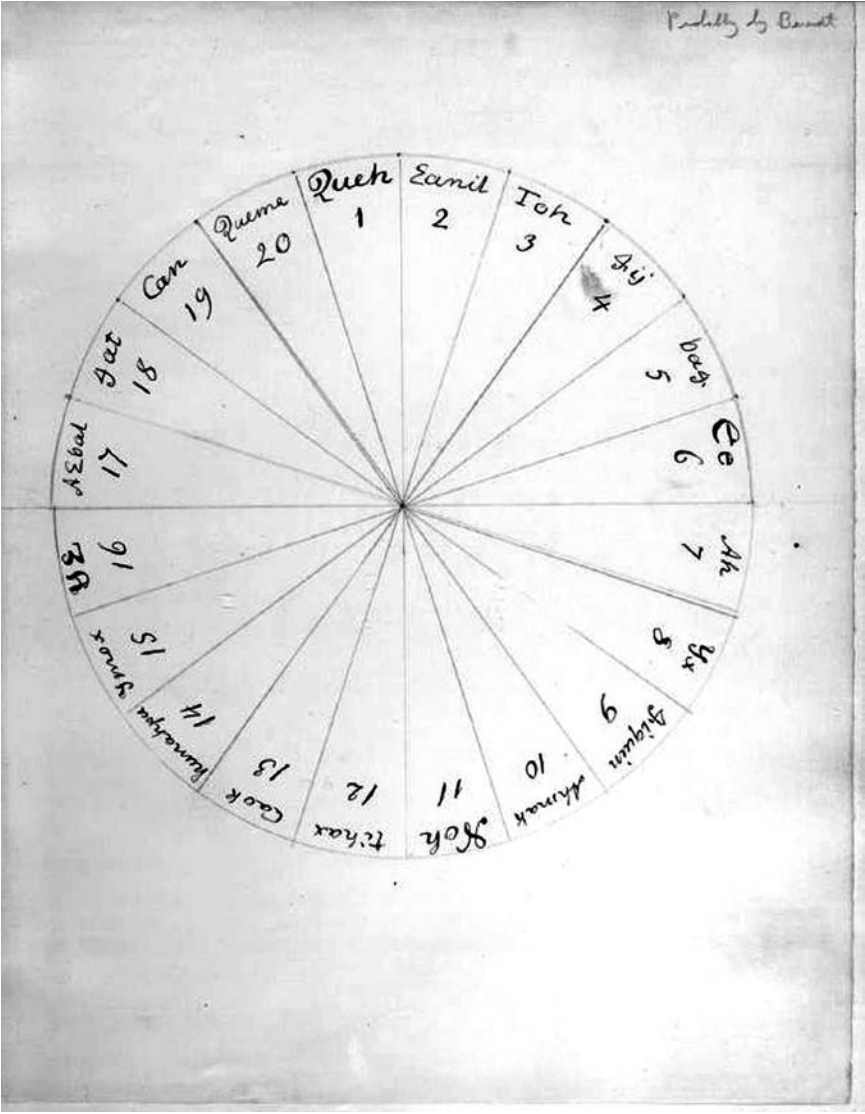 Probably by Berendt
Queh
1
Eanil
2
Toh
3
4
bag.
5
Ee
6
Ah
7
Yx
8
9
Ahmak
10
Noh
11
tihax
12
Caok
13
hunahpu
14
Ymox
15
16
AEbal
17
gat
18
Can
19
Queme
20